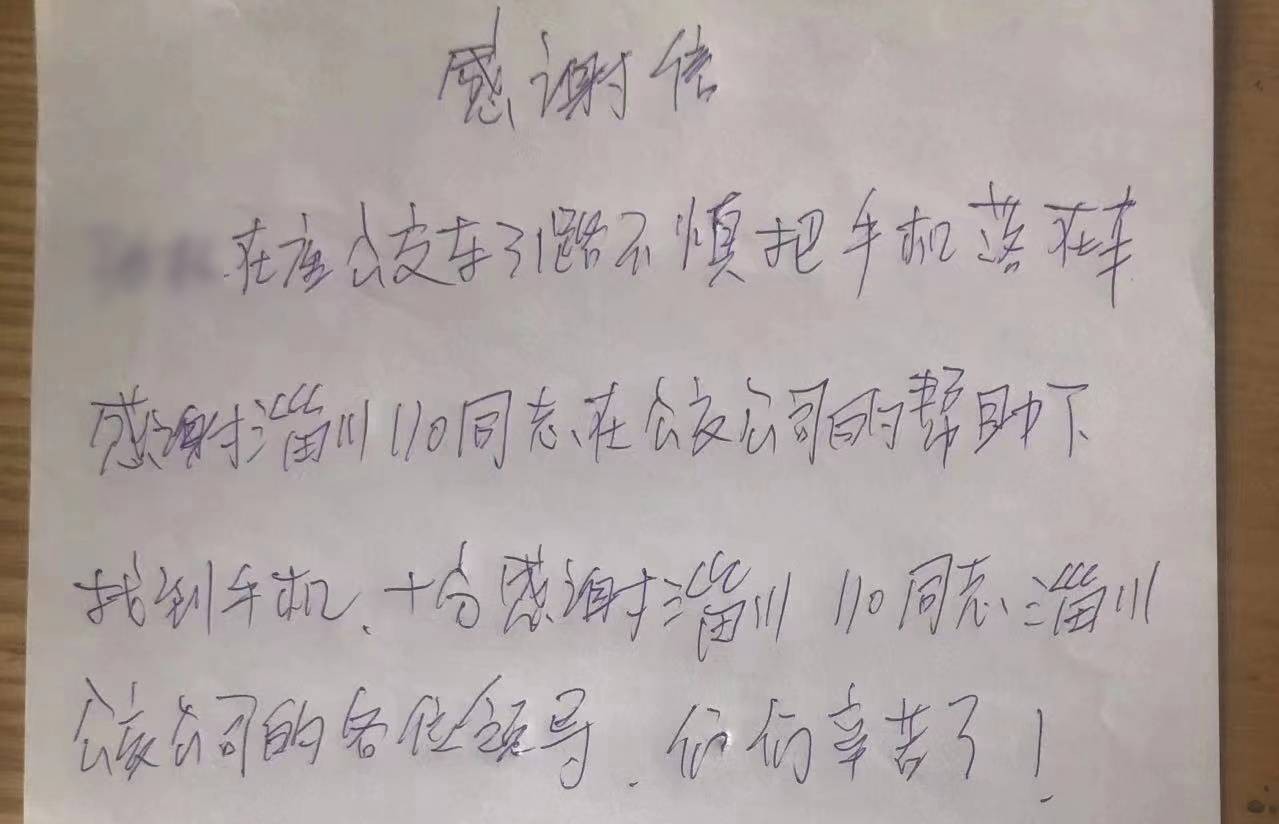 感谢信
在座公交车31路不慎把手机落在车
感谢淄川110同志在公交公司的帮助下
找到手机、十分感谢淄川110同志、淄川
公交公司的各位领导.你们辛苦了!